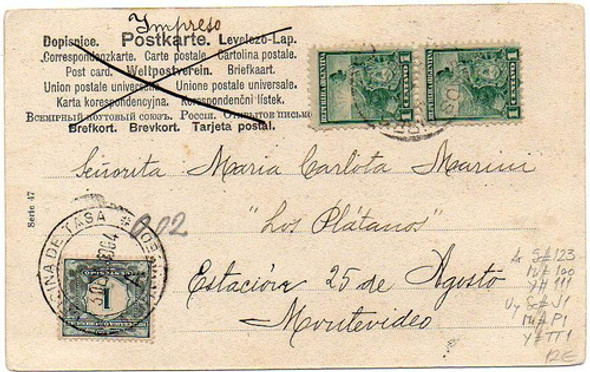 Impreso
Dopisnice. Postkarte. Levelezö-Lap.
Correspondenzkarte. Carte postale. Cartolina postale.
Post card. Weltpostverein. Briefkaart.
Union postale universelle. Unione postale universale.
Karta korespondencyjna. Korespondenční lístek.
Всемірный почтовый союзъ. Россія. Открытое письмо
Brefkort. Brevkort. Tarjeta postal.
REPUBLICA ARGENTINA
1 CENTAVO 1
REPUBLICA ARGENTINA
1 CENTAVO 1
Señorita Maria Carlota Marini
Serie 47
"Los Plátanos"
0.02
OFICINA DE TASA
MONTEVIDEO
1
CENTESIMO
Estación 25 de Agosto
Montevideo
Ar Sc#123
Mi# 100
Y# 111
Uy Sc# J1
Mi# P1
Y# TT1